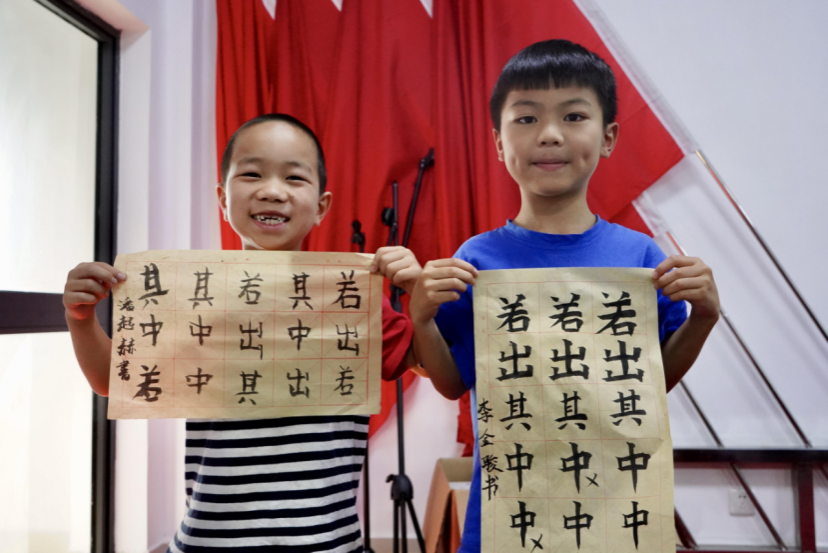 若出若
其中出
若出其
其中中
其中若
潘起赫書
若出其中中
若出其中中
若出其中中
李金书